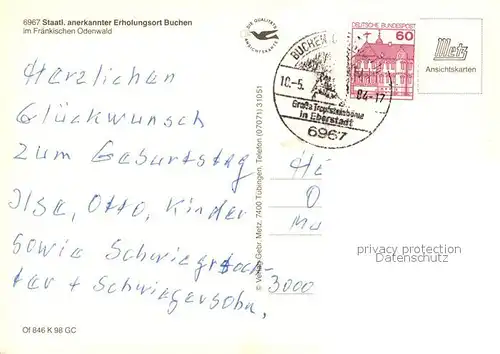 6967 Staatl. anerkannter Erholungsort Buchen
im Fränkischen Odenwald
Herzlichen
Glückwunsch
zum Geburtstag
Ilse, Otto, Kinder
sowie Schwiegertoch-
ter + Schwiegersohn,
Of 846 K 98 GC
DIE QUALITÄTS
ANSICHTSKARTE
© Verlag Gebr. Metz, 7400 Tübingen, Telefon (07071) 31051
BUCHEN
10.-5.
84-17
Große Tropfsteinhöhle
in Eberstadt
6967
DEUTSCHE BUNDESPOST
60
Metz
Ansichtskarten
3000
privacy protection
Datenschutz